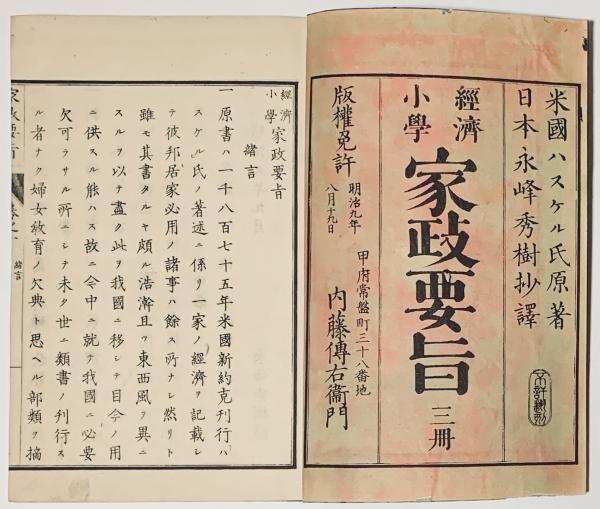 米國ハスケル氏原著
日本永峰秀樹抄譯
經濟
小學
家政要旨
三冊
不許翻刻
版權免許
明治九年
八月十九日
甲府常盤町三十八番地
内藤傳右衞門
經濟
小學
家政要旨
緒言
一原書ハ一千八百七十五年米國新約克刊行「ハ
スケル」氏ノ著述ニ係リ一家ノ經濟ヲ記載シ
テ彼邦居家必用ノ諸事ハ餘ス所ナシ然リト
雖モ其書タルヤ頗ル浩瀚且ツ東西風ヲ異ニ
スルヲ以テ盡ク此ヲ我國ニ移シテ目今ノ用
ニ供スル能ハス故ニ今中ニ就テ我國ニ必要
欠可ラサル所ニシテ未タ世ニ類書ノ刊行ス
ル者ナク婦女敎育ノ欠典ト思ヘル部類ヲ摘
家政要旨
卷之一
緒言